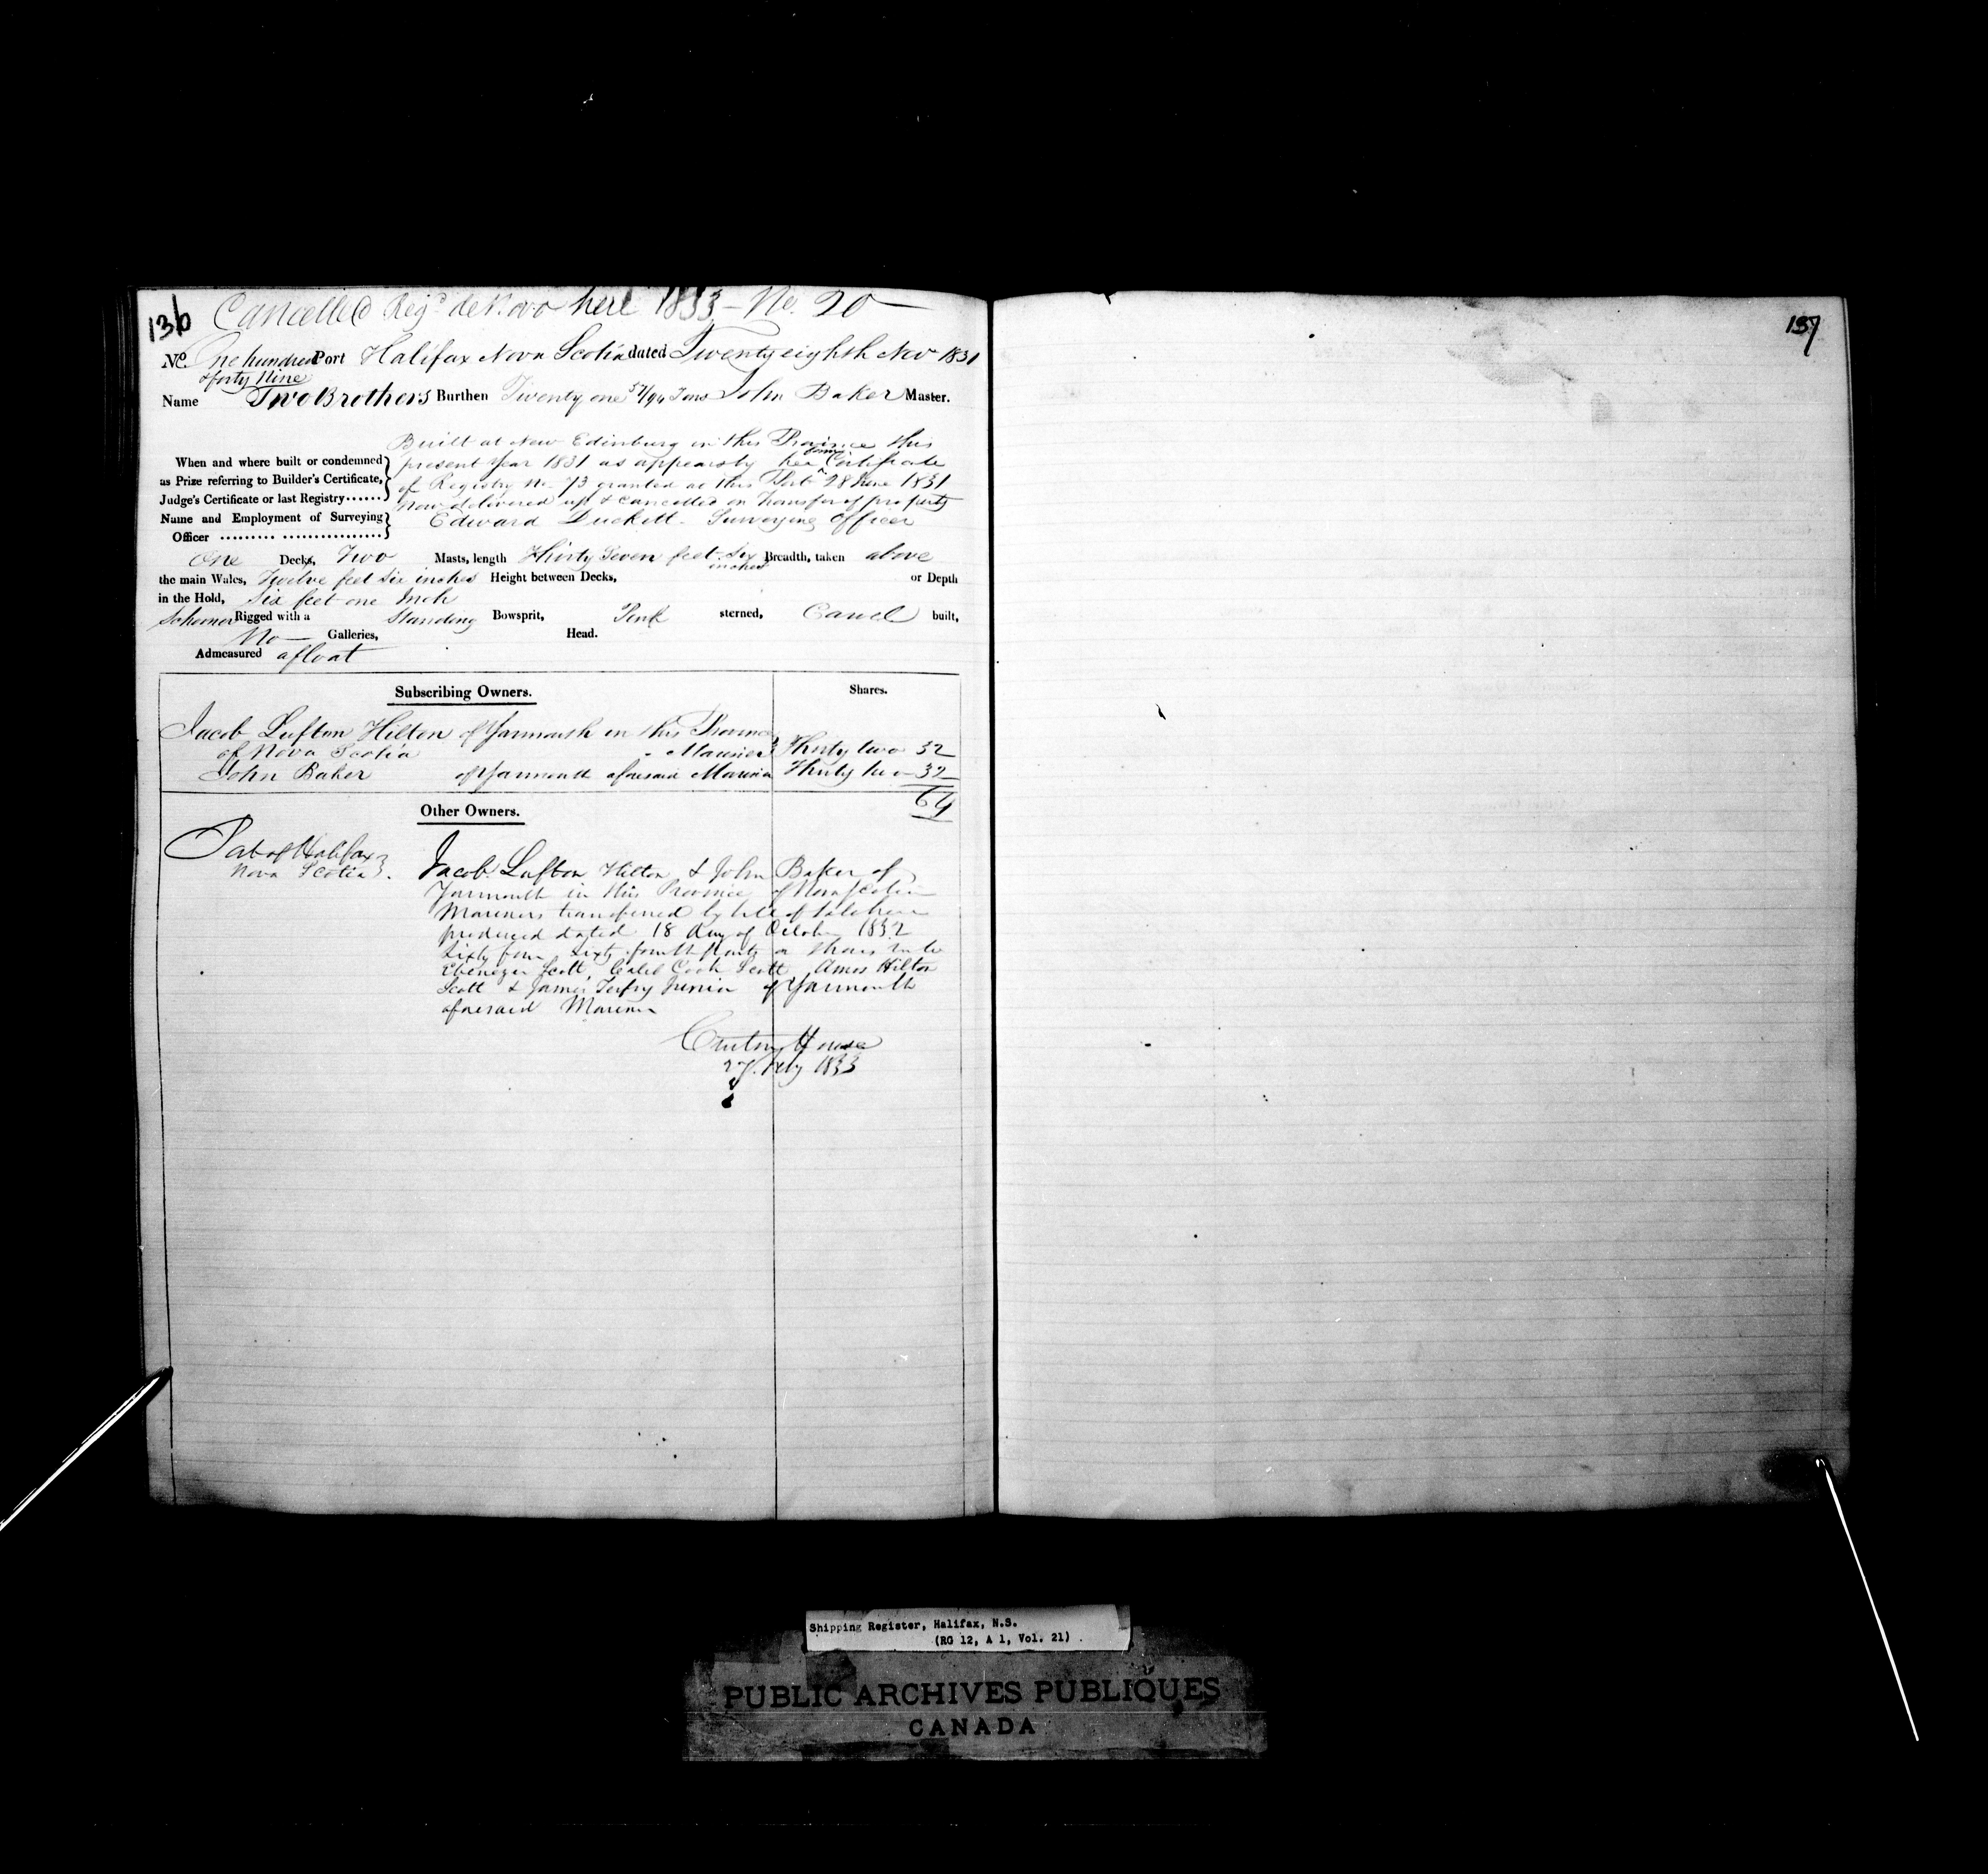 136
Cancelled Regd. de Novo here 1833 - No. 20
No. One hundred Port Halifax Nova Scotia dated Twenty eighth Nov 1831
& forty Nine
Name Two Brothers Burthen Twenty one 57/94 Tons John Baker Master.
Built at New Edinburg in this Province this
When and where built or condemned present Year 1831 as appears by her former Certificate
as Prize referring to Builder's Certificate, of Registry No. 73 granted at this Port 28 June 1831
Judge's Certificate or last Registry...... now delivered up & cancelled on Transfer of property
Name and Employment of Surveying Edward Duckett - Surveying Officer
Officer ......... ................
One Decks, Two Masts, length Thirty Seven feet Six inches Breadth, taken above
the main Wales, Twelve feet Six inches Height between Decks, or Depth
in the Hold, Six feet one Inch
Schooner Rigged with a Standing Bowsprit, Pink sterned, Carvel built,
No Galleries, Head.
Admeasured afloat
Subscribing Owners. Shares.
Jacob Lufton Hilton of Yarmouth in this Province
of Nova Scotia - Mariner Thirty two 32
John Baker of Yarmouth aforesaid Mariner Thirty two 32
64
Other Owners.
Port of Halifax
Nova Scotia
Jacob Lufton Hilton & John Baker of
Yarmouth in this Province of Nova Scotia
Mariners transferred by bill of sale here
produced dated 18 day of October 1832
Sixty four Sixty fourth parts or Shares unto
Ebenezer Scott, Caleb Cook Scott, Amos Hilton
Scott & James Junior of Yarmouth
aforesaid Mariners
Custom House
27 Feby 1833
137
Shipping Register, Halifax, N.S.
(RG 12, A 1, Vol. 21)
PUBLIC ARCHIVES PUBLIQUES
CANADA